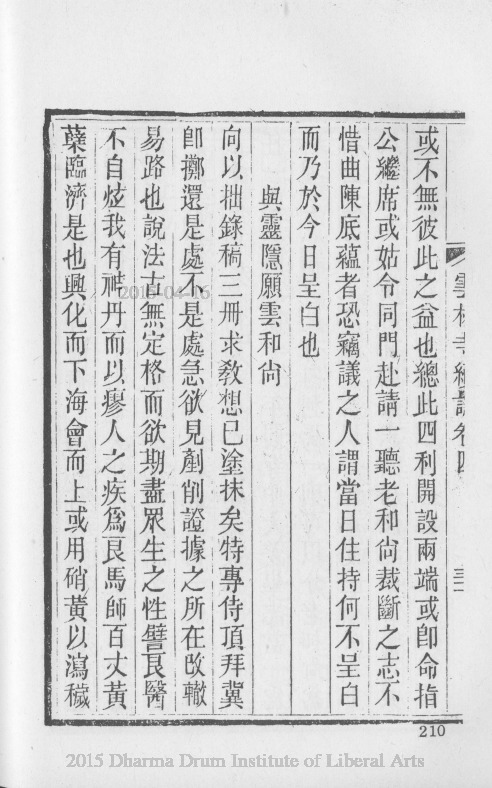 雲林寺續誌卷四 三二
或不無彼此之益也總此四利開設兩端或卽命指
公繼席或姑令同門赴請一聽老和尙裁斷之志不
惜曲陳底蘊者恐竊議之人謂當日住持何不呈白
而乃於今日呈白也
與靈隱願雲和尙
向以拙錄稿三冊求敎想已塗抹矣特專侍頂拜冀
卽擲還是處不是處急欲見劊削證據之所在改轍
易路也說法古無定格而欲期盡眾生之性譬良醫
不自炫我有神丹而以瘳人之疾爲良馬師百丈黃
蘗臨濟是也興化而下海會而上或用硝黃以瀉穢
210
2015-04-16
2015 Dharma Drum Institute of Liberal Arts